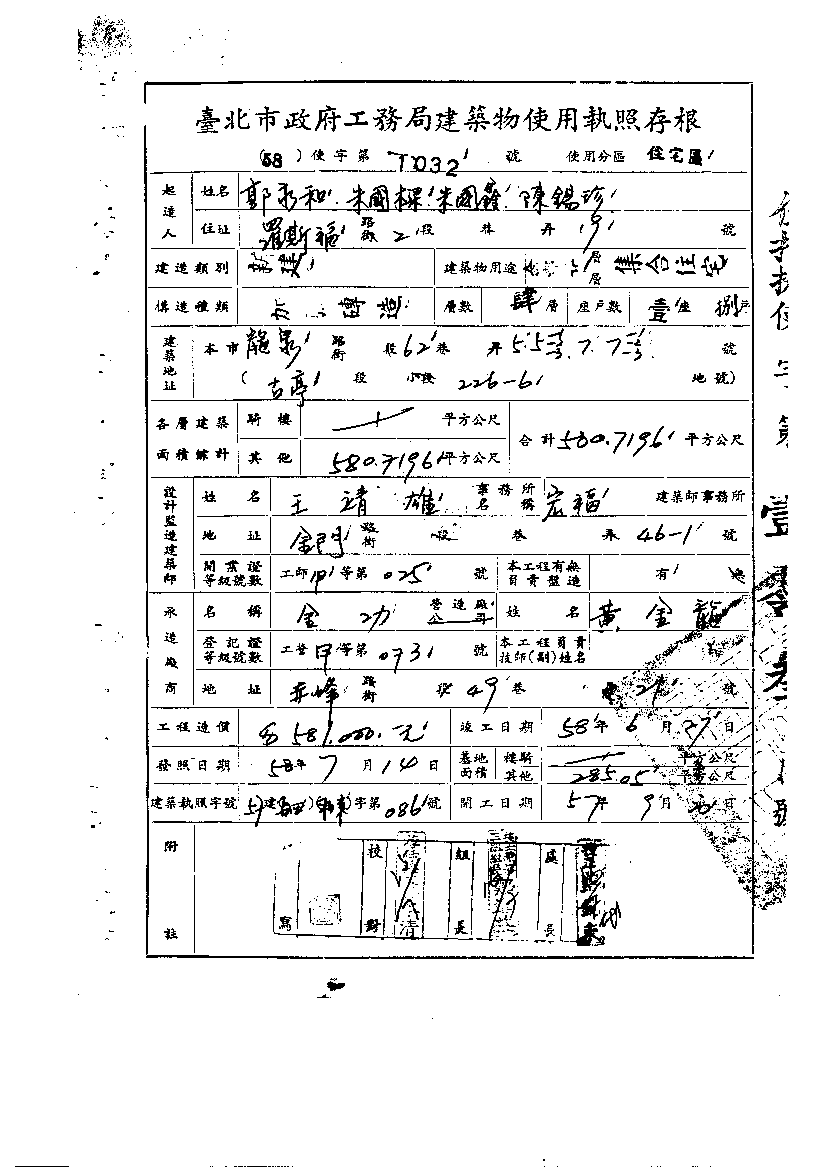 臺北市政府工務局建築物使用執照存根
(58)使字第 1032 號 使用分區 住宅區
起造人 姓名 郭 和 朱國樑 朱國鑫 陳錫珍
住址 羅斯福 路街 2 段 巷 弄 19 號
建造類別 新建 建築物用途 層 集合住宅
構造種類 加 磚造 層數 肆層 座戶數 壹座 捌戶
建築地址 本市 龍泉 路街 段 62 巷 弄 5. 7. 號
( 古亭 段 小段 226-6 地號)
各層建築面積總計 騎樓 平方公尺 合計 580.7196 平方公尺
其他 580.7196 平方公尺
設計監造建築師 姓名 王靖雄 事務所名稱 宏福 建築師事務所
地址 金門 路街 段 巷 弄 46-1 號
開業證等級號數 工師甲等第 025 號 本工程有無負責監造 有 無
承造廠商 名稱 金功 營造廠公司 姓名 黃金龍
登記證等級號數 工登甲等第 0731 號 本工程負責技師(副)姓名
地址 赤峰 路街 段 49 巷 21 號
工程造價 581,000.元 竣工日期 58年 6月 27日
發照日期 58年 7月 14日 基地面積 騎樓 平方公尺
其他 285.05 平方公尺
建築執照字號 57建( )( )字第 086 號 開工日期 57年 9月 日
附註 寫 校對 組長 處長